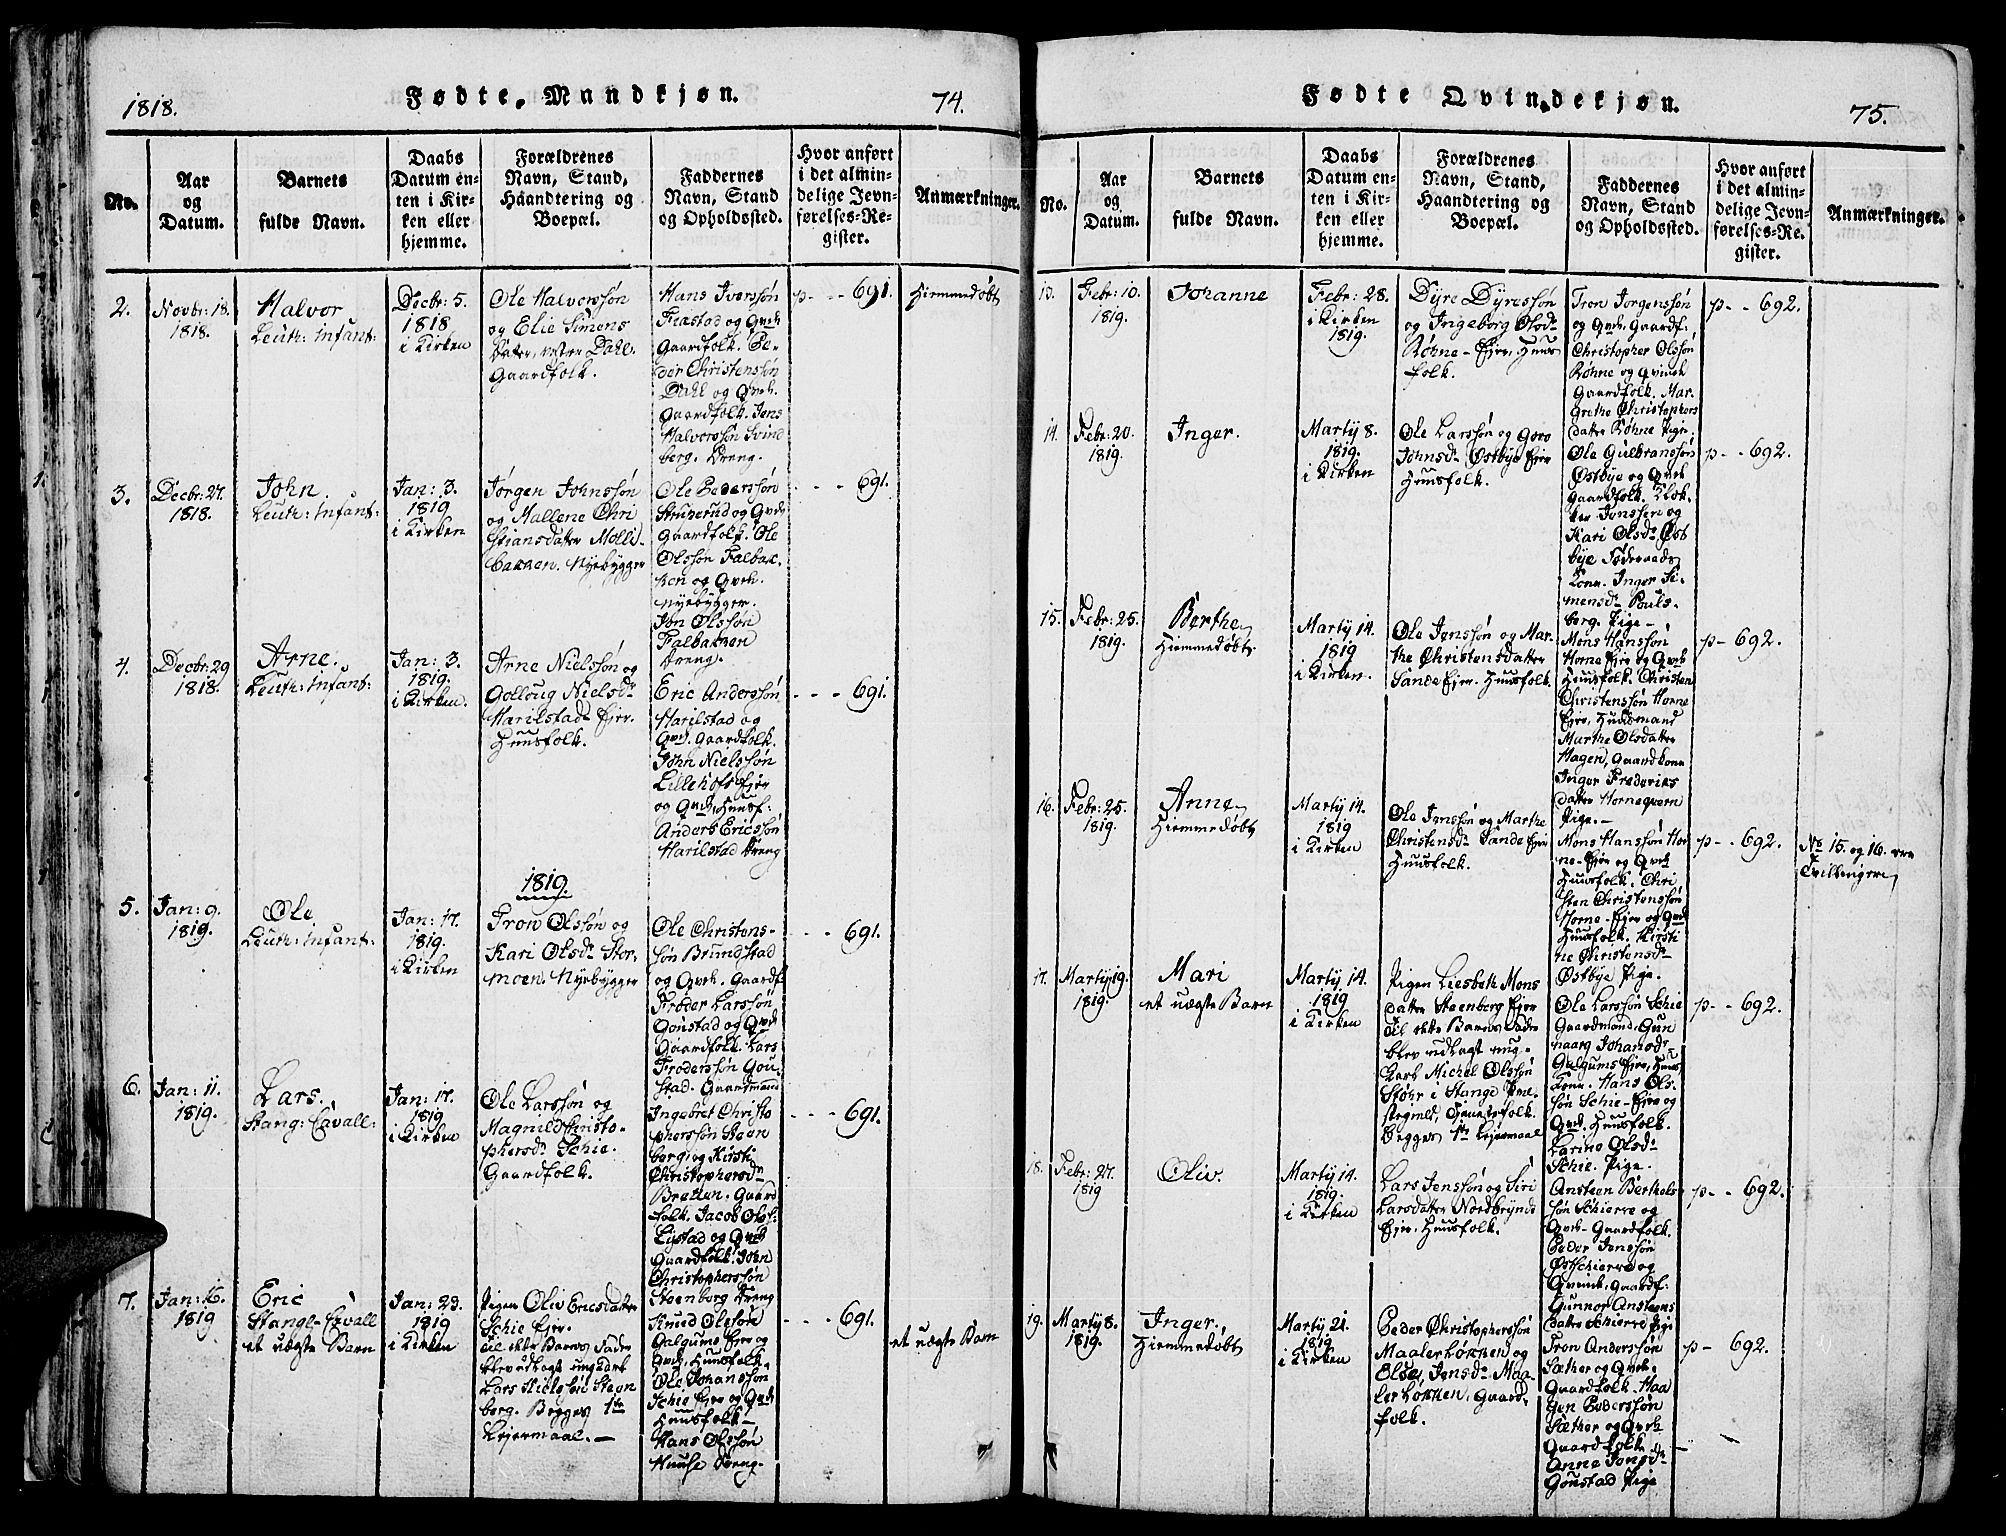 1818.
Fødte Mandkjøn.
74.
No.
Aar
og
Datum.
Barnets
fulde Navn.
Daabs
Datum en-
ten i Kir-
ken eller
hjemme.
Forældrenes
Navn, Stand,
Haandtering og
Boepæl.
Faddernes
Navn, Stand
og Opholdssted.
Hvor anført
i det almin-
delige Jevn-
førelses-Re-
gister.
Anmærkninger.
2.
Novbr: 18.
1818.
Halvor
Leuth: Infant:
Decbr: 5.
1818
i Kirken
Ole Halvorssøn
og Elie Simens
Datter, Dahl
Gaardfolk.
Hans Iverssøn
Frastad og Qvde
Gaardfolk. Pe-
der Christenssøn
Dahl og Qvde
Gaardfolk. Jens
Halvorssøn Svind
berg. Dreng.
p- - - 691.
Hiemmedøbt
3.
Decbr: 27.
1818.
John.
Leuth: Infant:
Jan: 3.
1819
i Kirken
Jørgen Johnssøn
og Mallene Chri
stiansdatter Molli-
bakken. Nyebygger
Ole Pederssøn
Struperud og Qvde
Gaardfolk. Ole
Olssøn Falbak-
ken og Qvde.
Nyebygger.
Jon Olssøn
Falbakken
Dreng.
- - - 691.
4.
Decbr: 29
1818.
Arne.
Leuth: Infant:
Jan: 3.
1819.
i Kirken.
Arne Nielssøn og
Golloug Nielsdr
Harilstad Ejer.
Huusfolk.
Eric Anderssøn
Harilstad og
Qvd. Gaardfolk.
John Nielssøn
Lillehofs Ejer
og Qvde, Huusf:
Anders Ericssøn
Harilstad Dreng
- - - 691.
1819.
5.
Jan: 9.
1819.
Ole
Leuth: Infant:
Jan: 17.
1819.
i Kirken
Tron Olssøn og
Kari Olsdr Stor-
moen. Nyebygger
Ole Christens-
søn Brundstad
og Qvde. Gaardf
Frøder Larssøn
Goustad og Qvde
Gaardfolk. Lars
Froderssøn Gou-
stad. Gaardmand
- - - 691.
6.
Jan: 11.
1819.
Lars.
Stang: Cavall:
Jan: 17.
1819
i Kirken
Ole Larssøn og
Magnild Christo-
phersdr Schie.
Gaardfolk.
Ingebret Christo
pherssøn Steen
berg, og Kirsti
Christophersdr
Bratten. Gaard
folk. Jacob Ols:
Lystad og Qvde
Gaardfolk. John
Christopherssøn
Steenberg Dreng
- - - 691.
7.
Jan: 16.
1819
Eric
Stange-Cavall
et uægte Barn
Jan: 23.
1819
i Kirken
Pigen Oliv Ericsdatter
Schie Ejer.
Til dette Barns Fader
blev udlagt ungkarl
Lars Nielssøn Steen
berg. Begges 1ste
Lejermaal.-
Knud Olssøn
Galgums Ejer og
Qvde. Huusfolk.
Ole Johanssøn
Schie Ejer og Qvde
Huusfolk-
Hans Olssøn
Huuse Dreng.
- - - 691.
et uægte Barn
Fødte Qvindekjøn.
75.
No.
Aar
og
Datum.
Barnets
fulde Navn.
Daabs
Datum en-
ten i Kir-
ken eller
hjemme.
Forældrenes
Navn, Stand,
Haandtering og
Boepæl.
Faddernes
Navn, Stand
og Opholdssted.
Hvor anført
i det almin-
delige Jevn-
førelses-Re-
gister.
Anmærkninger.
13.
Febr: 10.
1819.
Johanne
Febr: 28.
i Kirken
1819.
Dyre Dyressøn
og Ingeborg Olsdr
Røhne-Ejer. Huus
folk.
Tron Jørgenssøn
og Qvde. Gaardf:
Christopher Olssøn
Røhne og Qvinde
Gaardfolk. Mar-
grethe Christophers
datter Røhne Pige.
p- - 692.
14.
Febr: 20.
1819.
Inger.
Martij 8.
1819.
i Kirken
Ole Larssøn og Goro
Johnsdr Østbye Ejer
Huusfolk.
Ole Gulbranssøn
Østbye og Qvde
Gaardfolk. Klok-
ker Jonssen og
Kari Olsdr Øst
bye Føderaads
Kone. Inger Si-
mensdr Pouls-
berg. Pige-
p- - 692.
15.
Febr: 25.
1819.
Berthe
Hiemmedøbt
Martij 14.
1819
i Kirken.
Ole Jenssøn og Mar-
the Christensdatter
Sande Ejer. Huusfolk.
Mons Hanssøn
Horne Ejer og Qvde
Huusfolk. Christen
Christenssøn Horne
Ejer, Huusmand
Marthe Olsdatter
Hagen, Gaardkone
Inger Frederiks
datter Hornequern
Pige.-
p- 692.
16.
Febr: 25.
1819.
Anne
Hiemmedøbt
Martij 14.
1819
i Kirken
Ole Jenssøn og Marthe
Christensdr Sande Ejer
Huusfolk.
Mons Hanssøn Hor
ne-Ejer og Qvde
Huusfolk. Chri
sten Christenssøn
Horne-Ejer og Qvde
Huusfolk. Kirsti
ne Christensdr
Østbye Pige.
p- - 692.
No 15. og 16. ere
Tvillinger
17.
Martij 9.
1819.
Mari
et uægte Barn
Martij 14.
1819
i Kirken
Pigen Liesbeth Mons
datter Steenberg Ejer
Til dette Barns Fader
blev udlagt ung-
karl Michel Olssøn
Støhr i Stange Præ-
stegield, Tienestefolk.
Begges 1te Lejermaal
Ole Larssøn Schie
Gaardmand, Gun
naarg Johansdr
Galgums Ejer, Huus
Kone. Hans Ols-
søn Schie-Ejer og
Qvd. Huusfolk.
Larine Olsdr
Schie. Pige.
p- - 692.
18.
Febr: 27.
1819
Oliv.
Martij 14.
1819.
i Kirken
Lars Jenssøn og Siri
Larsdatter Nordbrynds
Ejer, Huusfolk.
Ansteen Berthels
søn Schierre og
Qvde-Gaardfolk.
Peder Jenssøn
Østschierre og
Qvinde, Gaardf:
Gunnor Ansteens
datter Schierre Pige
p- - 692.
19.
Martij 8.
1819.
Inger.
Hiemmedøbt
Martij 21.
1819
i Kirken
Peder Christopherssøn
Maalerløkken og
Olse Jensdr Maa-
lerløkken, Gaard-
folk.
Tron Anderssøn
Sæther og Qvde.
Gaardfolk-Haa
gen Pederssøn
Sæther og Qvde
Gaardfolk. -
Anne Jonsdr
Goustad Pige
p- 692.